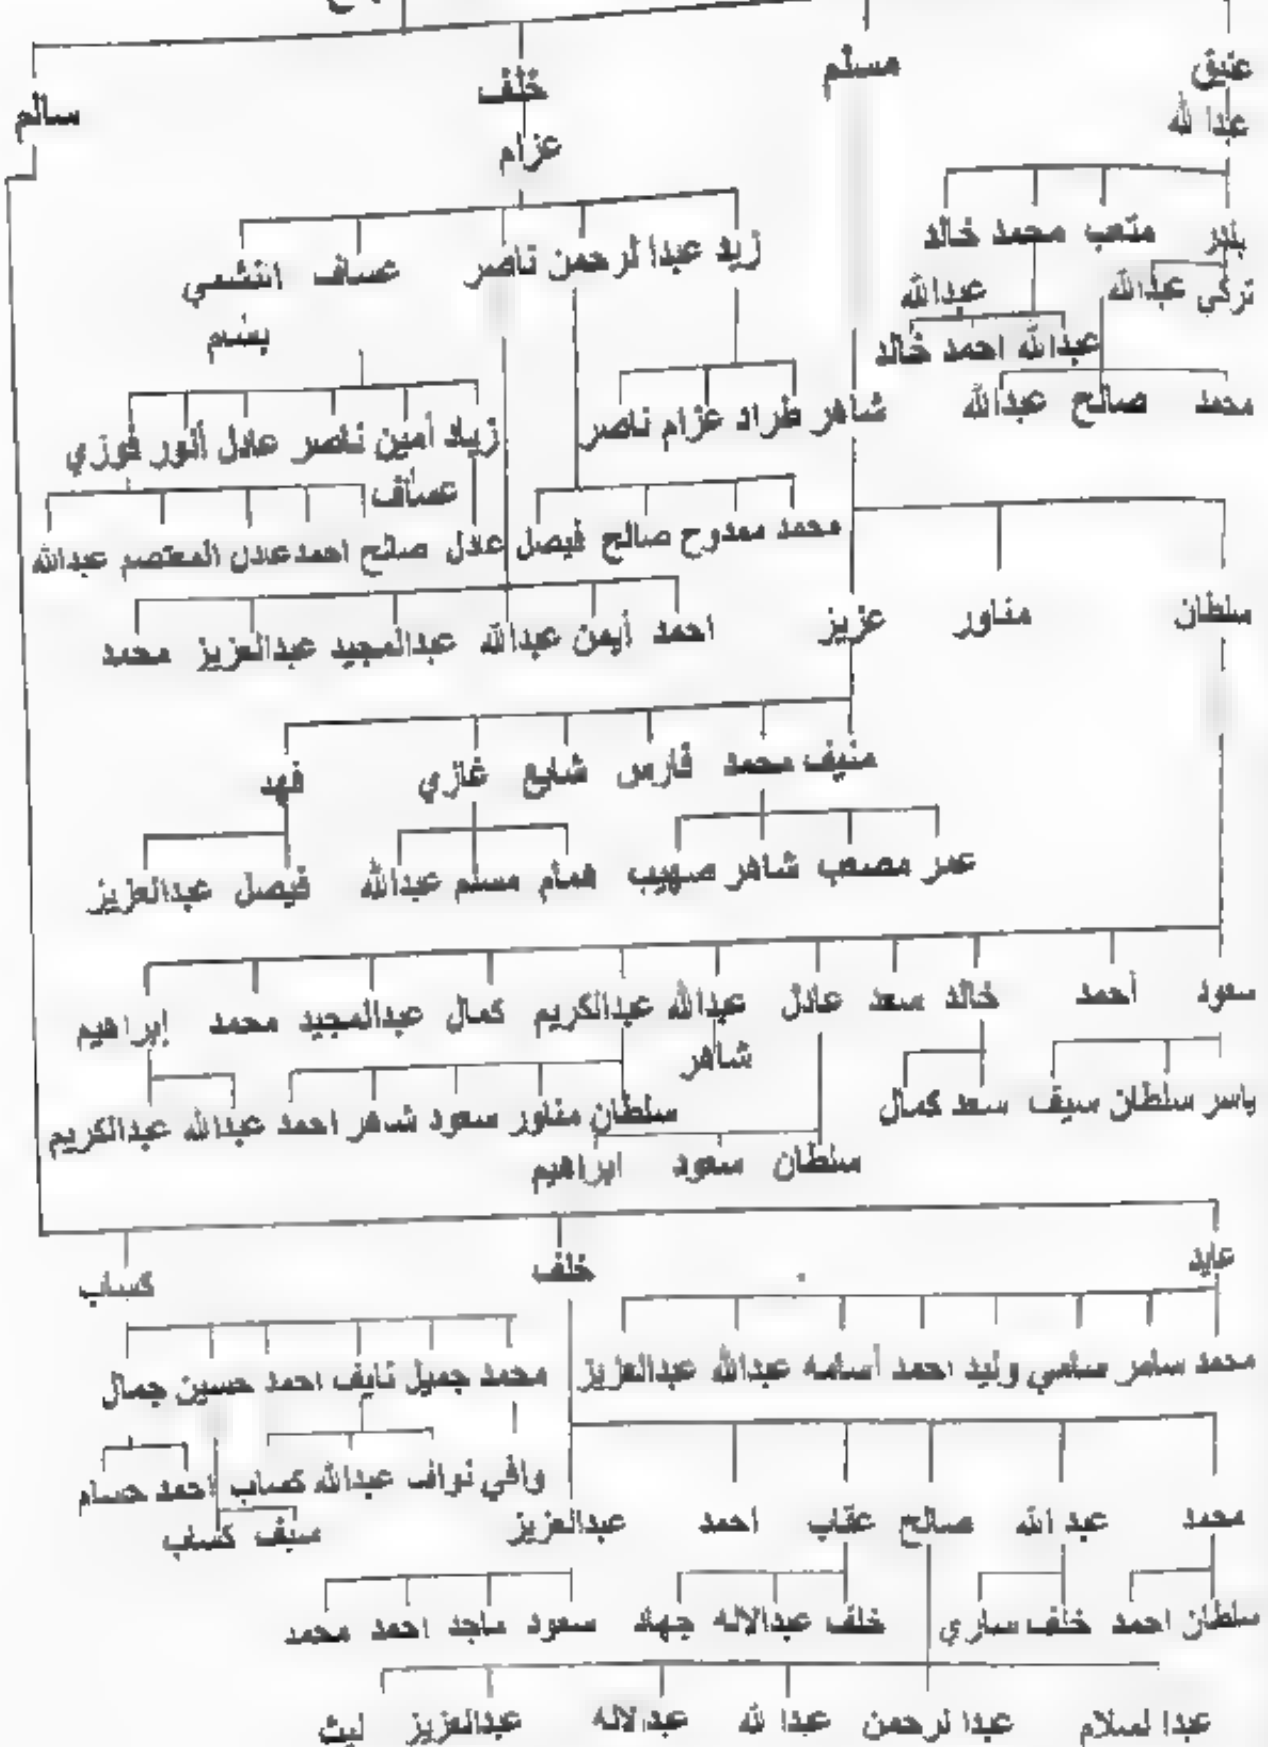 عتيق
مسلم
خلف
سالم
عبدا لله
عزام
بندر متعب محمد خالد
زيد عبدا لرحمن ناصر عساف
تركي عبدالله عبدالله
بسام
عبدالله احمد خالد
محمد صالح عبدالله
شاهر طراد عزام ناصر
زياد أمين ناصر عادل أنور فوزي
عساف
محمد ممدوح صالح فيصل عادل صالح احمد المعتصم عبدالله
سلطان مناور عزيز
احمد أيمن عبدالله عبدالمجيد عبدالعزيز محمد
منيف محمد فارس شايع غازي فهد
عمر مصعب شاهر صهيب همام مسلم عبدالله فيصل عبدالعزيز
سعود أحمد خالد سعد عادل عبدالله عبدالكريم كمال عبدالمجيد محمد إبراهيم
شاهر
ياسر سلطان سيف سعد كمال
سلطان مناور سعود شاهر احمد عبدالله عبدالكريم
سلطان سعود ابراهيم
عايد خلف كساب
محمد سامر سامي وليد احمد أسامه عبدالله عبدالعزيز
محمد جميل نايف احمد حسين جمال
وافي نواف عبدالله كساب احمد حسام
سيف كساب
محمد عبد الله صالح عقاب احمد عبدالعزيز
سلطان احمد خلف ساري خلف عبدالاله جهاد سعود ماجد احمد محمد
عبدا لسلام عبدا لرحمن عبدا لله عبدالاله عبدالعزيز ليث